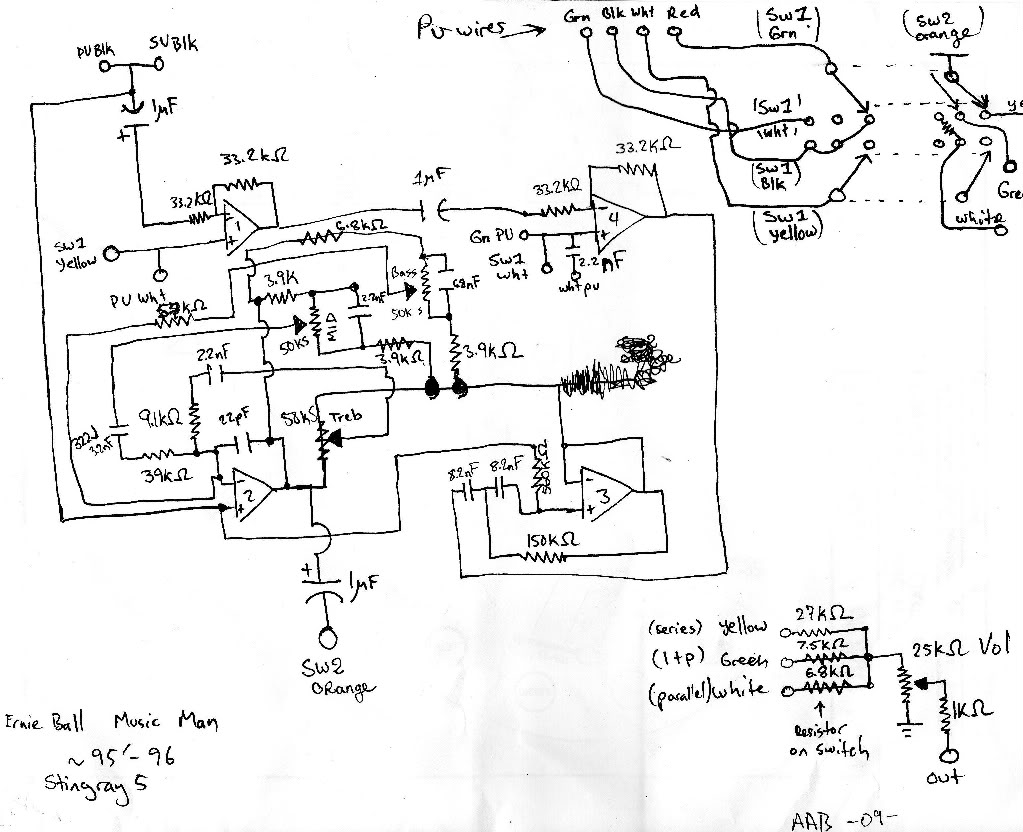 Pu wires
Grn Blk Wht Red
(SW1
Grn)
(SW2
orange)
PUBlk
5VBlk
1µF
+
'SW1'
'Wht,
(SW1
Blk)
(SW1
yellow)
ye
Gre
white
33.2kΩ
33.2kΩ
-
1
+
1µF
33.2kΩ
33.2kΩ
4
+
SW1
Yellow
PU Wht
6.8kΩ
Gn PU
SW1
Wht
2.2nF
Wht pu
3.9K
Bass
50K s
68nF
50KS
Mid
3.9kΩ
3.9kΩ
2.2nF
9.1kΩ
22pF
50kS
Treb
39kΩ
-
2
+
8.2nF
8.2nF
-
3
+
150kΩ
+
1µF
SW2
ORange
(series) yellow
27kΩ
(1+p) Green
7.5kΩ
(parallel) White
6.8kΩ
Resistor
on switch
25KΩ Vol
1KΩ
out
Ernie Ball Music Man
~95'-96
Stingray 5
AAB -09-